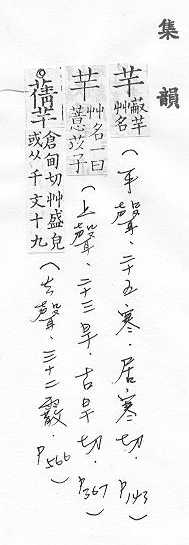 集韻
芉 蔽芉艸名 (平聲．二十五寒．居寒切．P143)
芉 艸名一曰薏苡子 (上聲．二十三旱．古旱切．P367)
。蒨芊 倉甸切艸盛皃或从千文十九 (去聲．三十二霰．P566)